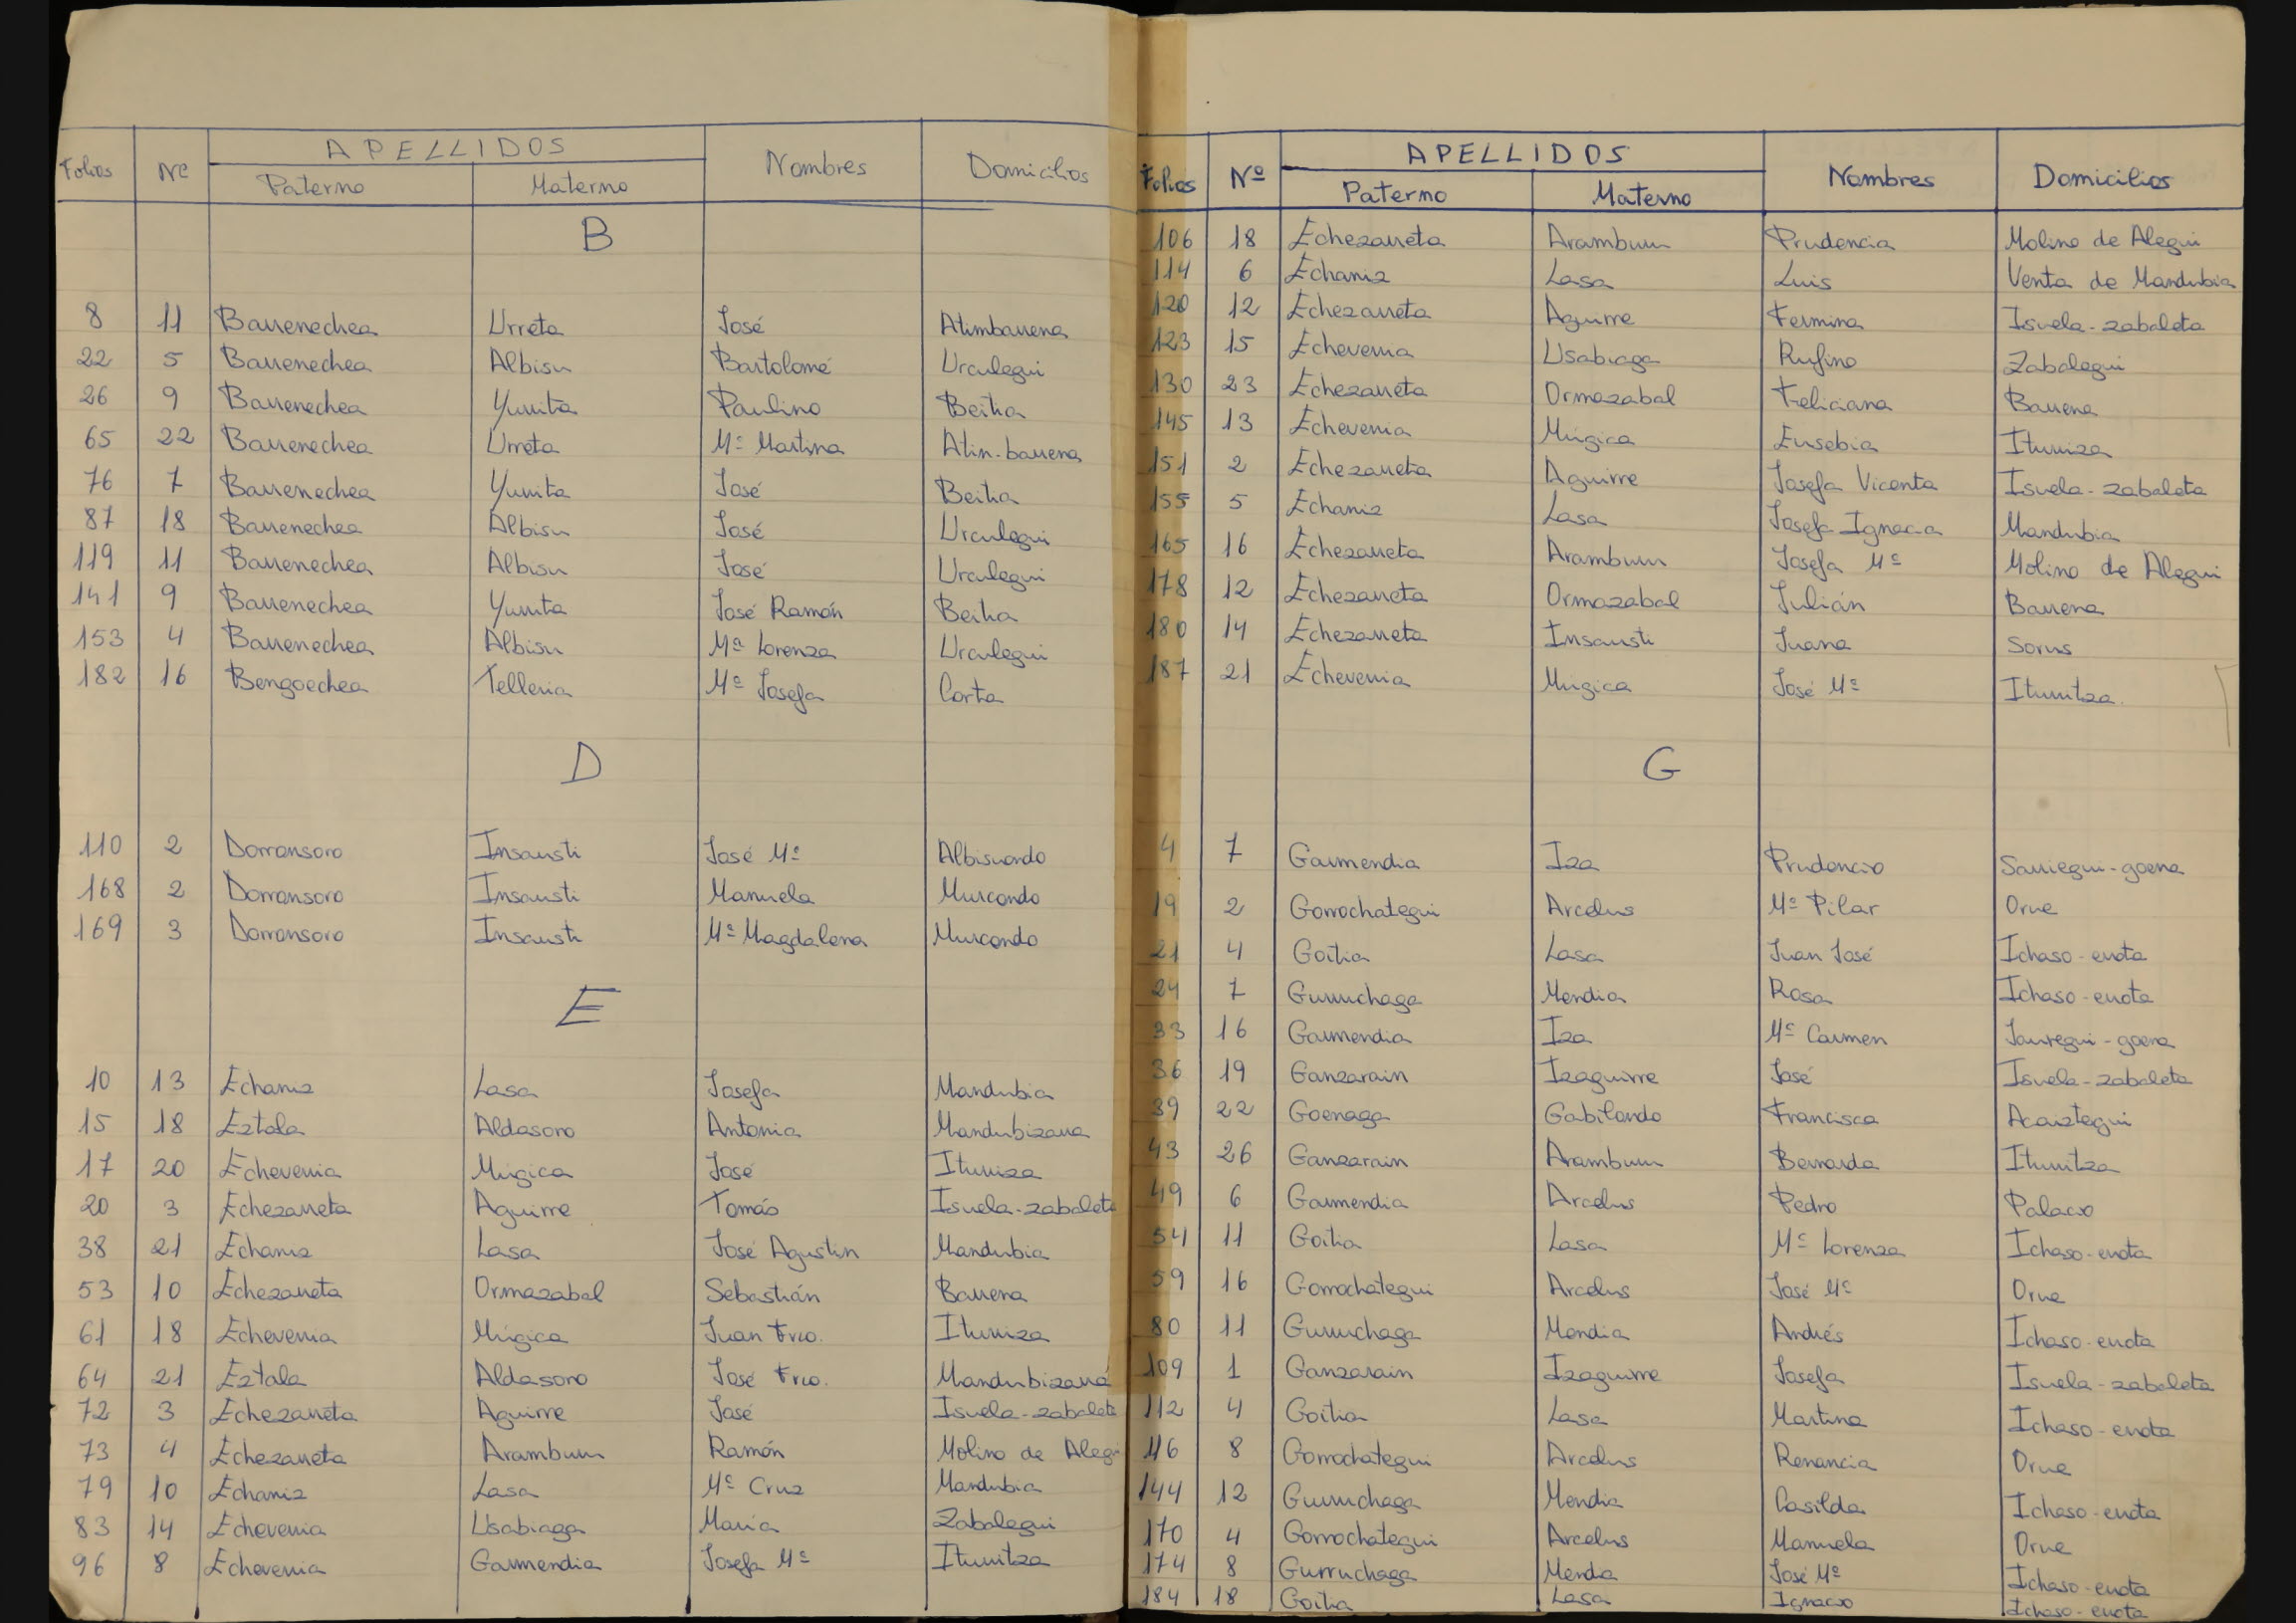 Folios Nº APELLIDOS Nombres Domicilios
Paterno Materno
B
8 11 Barrenechea Urreta José Atimbarrena
22 5 Barrenechea Albisu Bartolomé Urculegui
26 9 Barrenechea Yurrita Paulino Beitia
65 22 Barrenechea Urreta Mª Martina Atin-barrena
76 7 Barrenechea Yurrita José Beitia
87 18 Barrenechea Albisu José Urculegui
119 11 Barrenechea Albisu José Urculegui
141 9 Barrenechea Yurrita José Ramón Beitia
153 4 Barrenechea Albisu Mª Lorenza Urculegui
182 16 Bengoechea Telleria Mª Josefa Corta
D
110 2 Dorronsoro Insausti José Mª Albisuondo
168 2 Dorronsoro Insausti Manuela Murcondo
169 3 Dorronsoro Insausti Mª Magdalena Murcondo
E
10 13 Echaniz Lasa Josefa Mandubia
15 18 Eztala Aldasoro Antonia Mandubizarra
17 20 Echeverria Múgica José Iturriza
20 3 Echezarreta Aguirre Tomás Isuela-zabaleta
38 21 Echaniz Lasa José Agustin Mandubia
53 10 Echezarreta Ormazabal Sebastián Barrena
61 18 Echeverria Múgica Juan Frco. Iturriza
64 21 Eztala Aldasoro José Frco. Mandubizarra
72 3 Echezarreta Aguirre José Isuela-zabaleta
73 4 Echezarreta Aramburu Ramón Molino de Alegi
79 10 Echaniz Lasa Mª Cruz Mandubia
83 14 Echeverria Usabiaga Maria Zabalegui
96 8 Echeverria Garmendia Josefa Mª Iturritza
Folios Nº APELLIDOS Nombres Domicilios
Paterno Materno
106 18 Echezarreta Aramburu Prudencia Molino de Alegui
114 6 Echaniz Lasa Luis Venta de Mandubia
120 12 Echezarreta Aguirre Fermina Isuela-zabaleta
123 15 Echeverria Usabiaga Rufino Zabalegui
130 23 Echezarreta Ormazabal Feliciana Barrena
145 13 Echeverria Múgica Eusebia Iturriza
151 2 Echezarreta Aguirre Josefa Vicenta Isuela-zabaleta
155 5 Echaniz Lasa Josefa Ignacia Mandubia
165 16 Echezarreta Aramburu Josefa Mª Molino de Alegui
178 12 Echezarreta Ormazabal Julián Barrena
180 14 Echezarreta Insausti Juana Sorus
187 21 Echeverria Múgica José Mª Iturritza.
G
4 7 Garmendia Iza Prudencio Sarriegui-goena
19 2 Gorrochategui Arcelus Mª Pilar Orue
21 4 Goitia Lasa Juan José Ichaso-enota
24 7 Gurruchaga Mendia Rosa Ichaso-enota
33 16 Garmendia Iza Mª Carmen Jauregui-goena
36 19 Ganzarain Izaguirre José Isuela-zabaleta
39 22 Goenaga Gabilondo Francisca Acaiztegui
43 26 Ganzarain Aramburu Bernarda Iturritza
49 6 Garmendia Arcelus Pedro Palacio
54 11 Goitia Lasa Mª Lorenza Ichaso-enota
59 16 Gorrochategui Arcelus José Mª Orue
80 11 Gurruchaga Mendia Andrés Ichaso-enota
109 1 Ganzarain Izaguirre Josefa Isuela-zabaleta
112 4 Goitia Lasa Martina Ichaso-enota
116 8 Gorrochategui Arcelus Benancia Orue
144 12 Gurruchaga Mendia Casilda Ichaso-enota
170 4 Gorrochategui Arcelus Manuela Orue
174 8 Gurruchaga Mendia José Mª Ichaso-enota
184 18 Goitia Lasa Ignacio Ichaso-enota